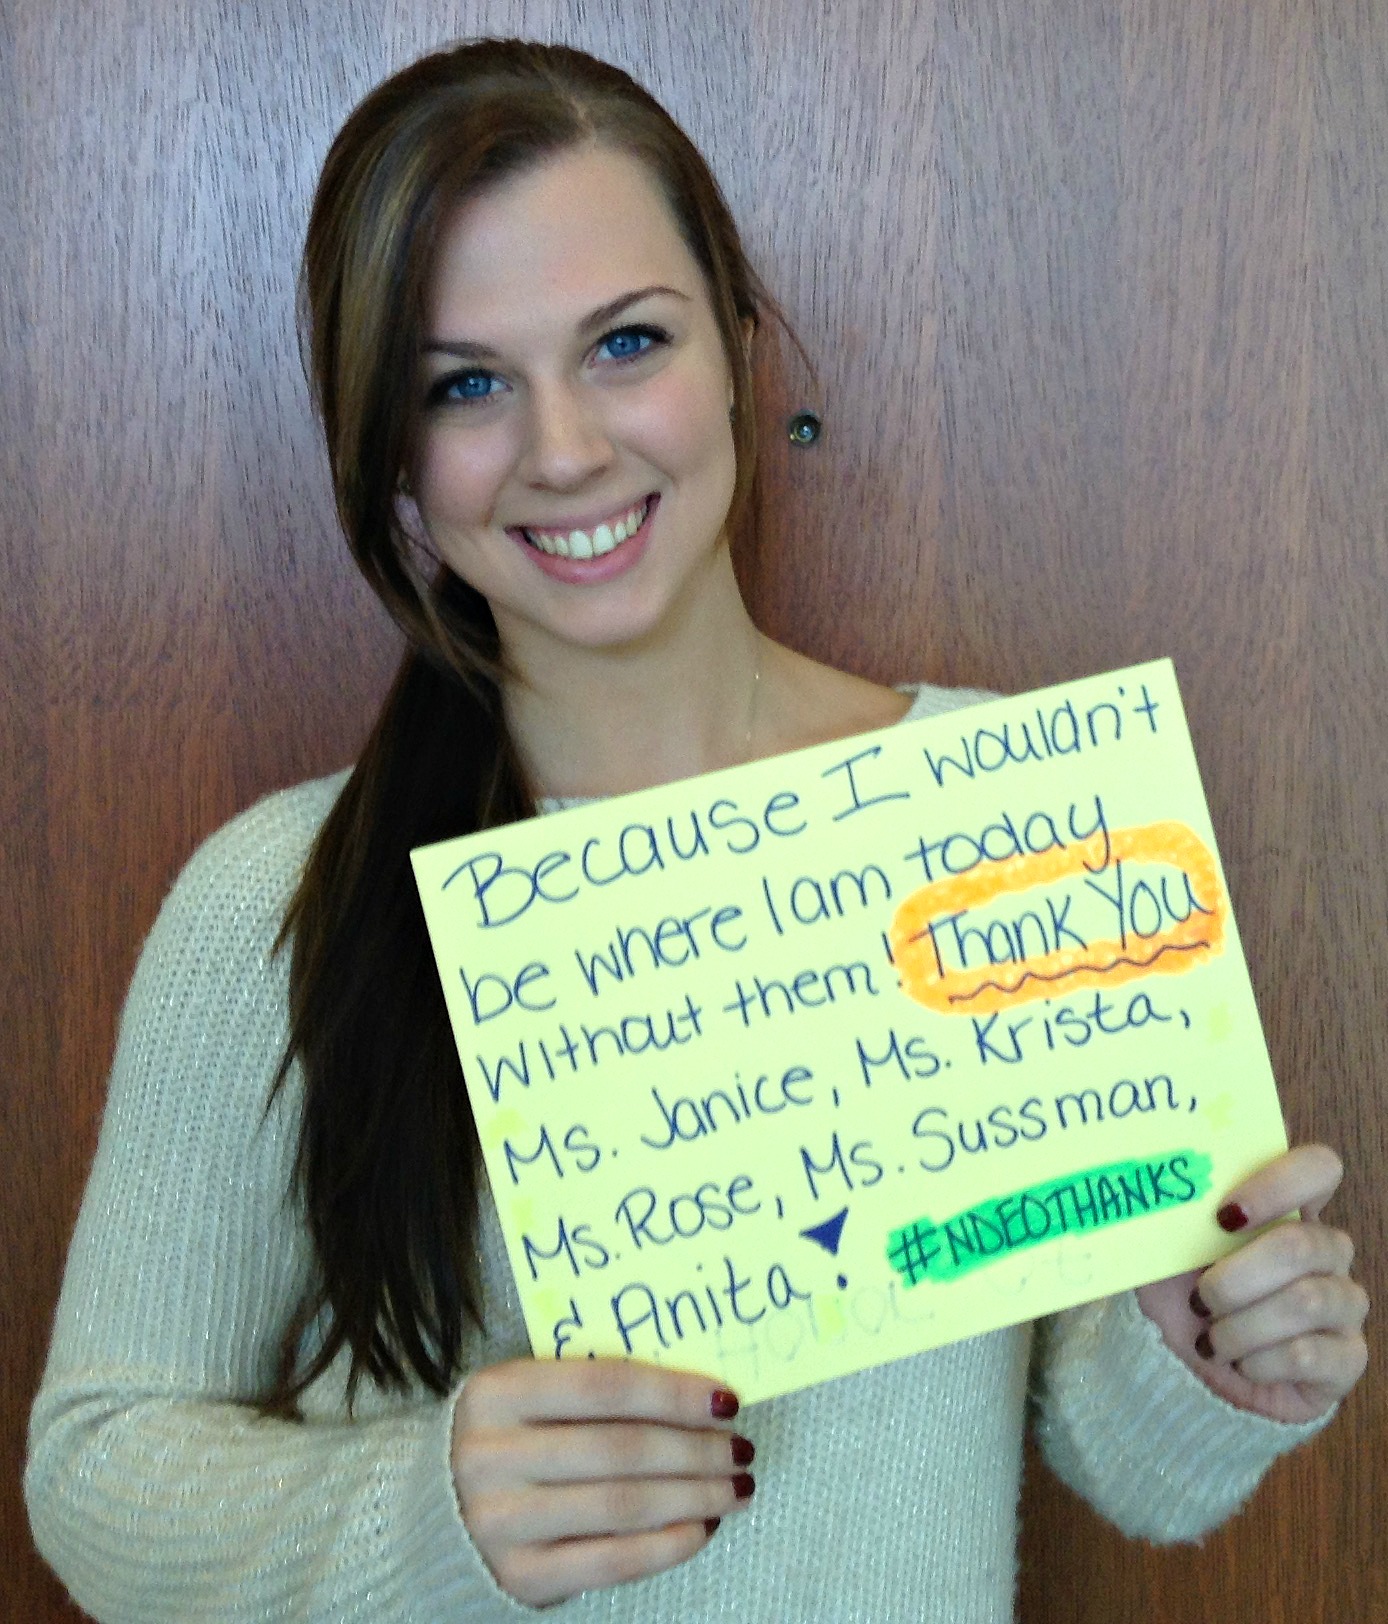 Because I wouldn't
be where I am today
without them! Thank You
Ms. Janice, Ms. Krista,
Ms. Rose, Ms. Sussman,
& Anita! #NDEOTHANKS